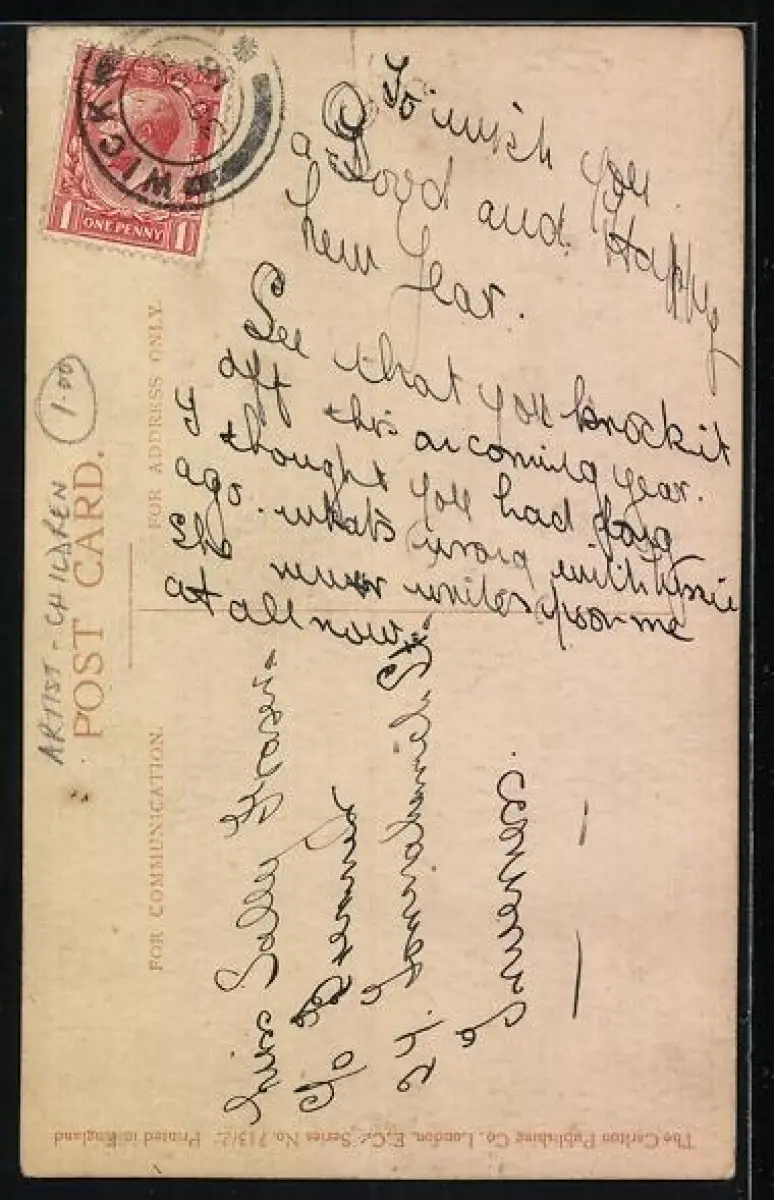 WICK
1 ONE PENNY 1
To wish you
a Good and Happy
New Year.
See that you knock it
off this oncoming year.
I thought you had long
ago. whats wrong with
She never writes me
at all now.
1-00
ARTIST - CHILDREN
POST CARD.
FOR ADDRESS ONLY.
FOR COMMUNICATION.
Miss Sally Fraser
c/o
24 Tomnahurich St.
Inverness.
The Carlton Publishing Co., London, E.C. Series No. Printed in England